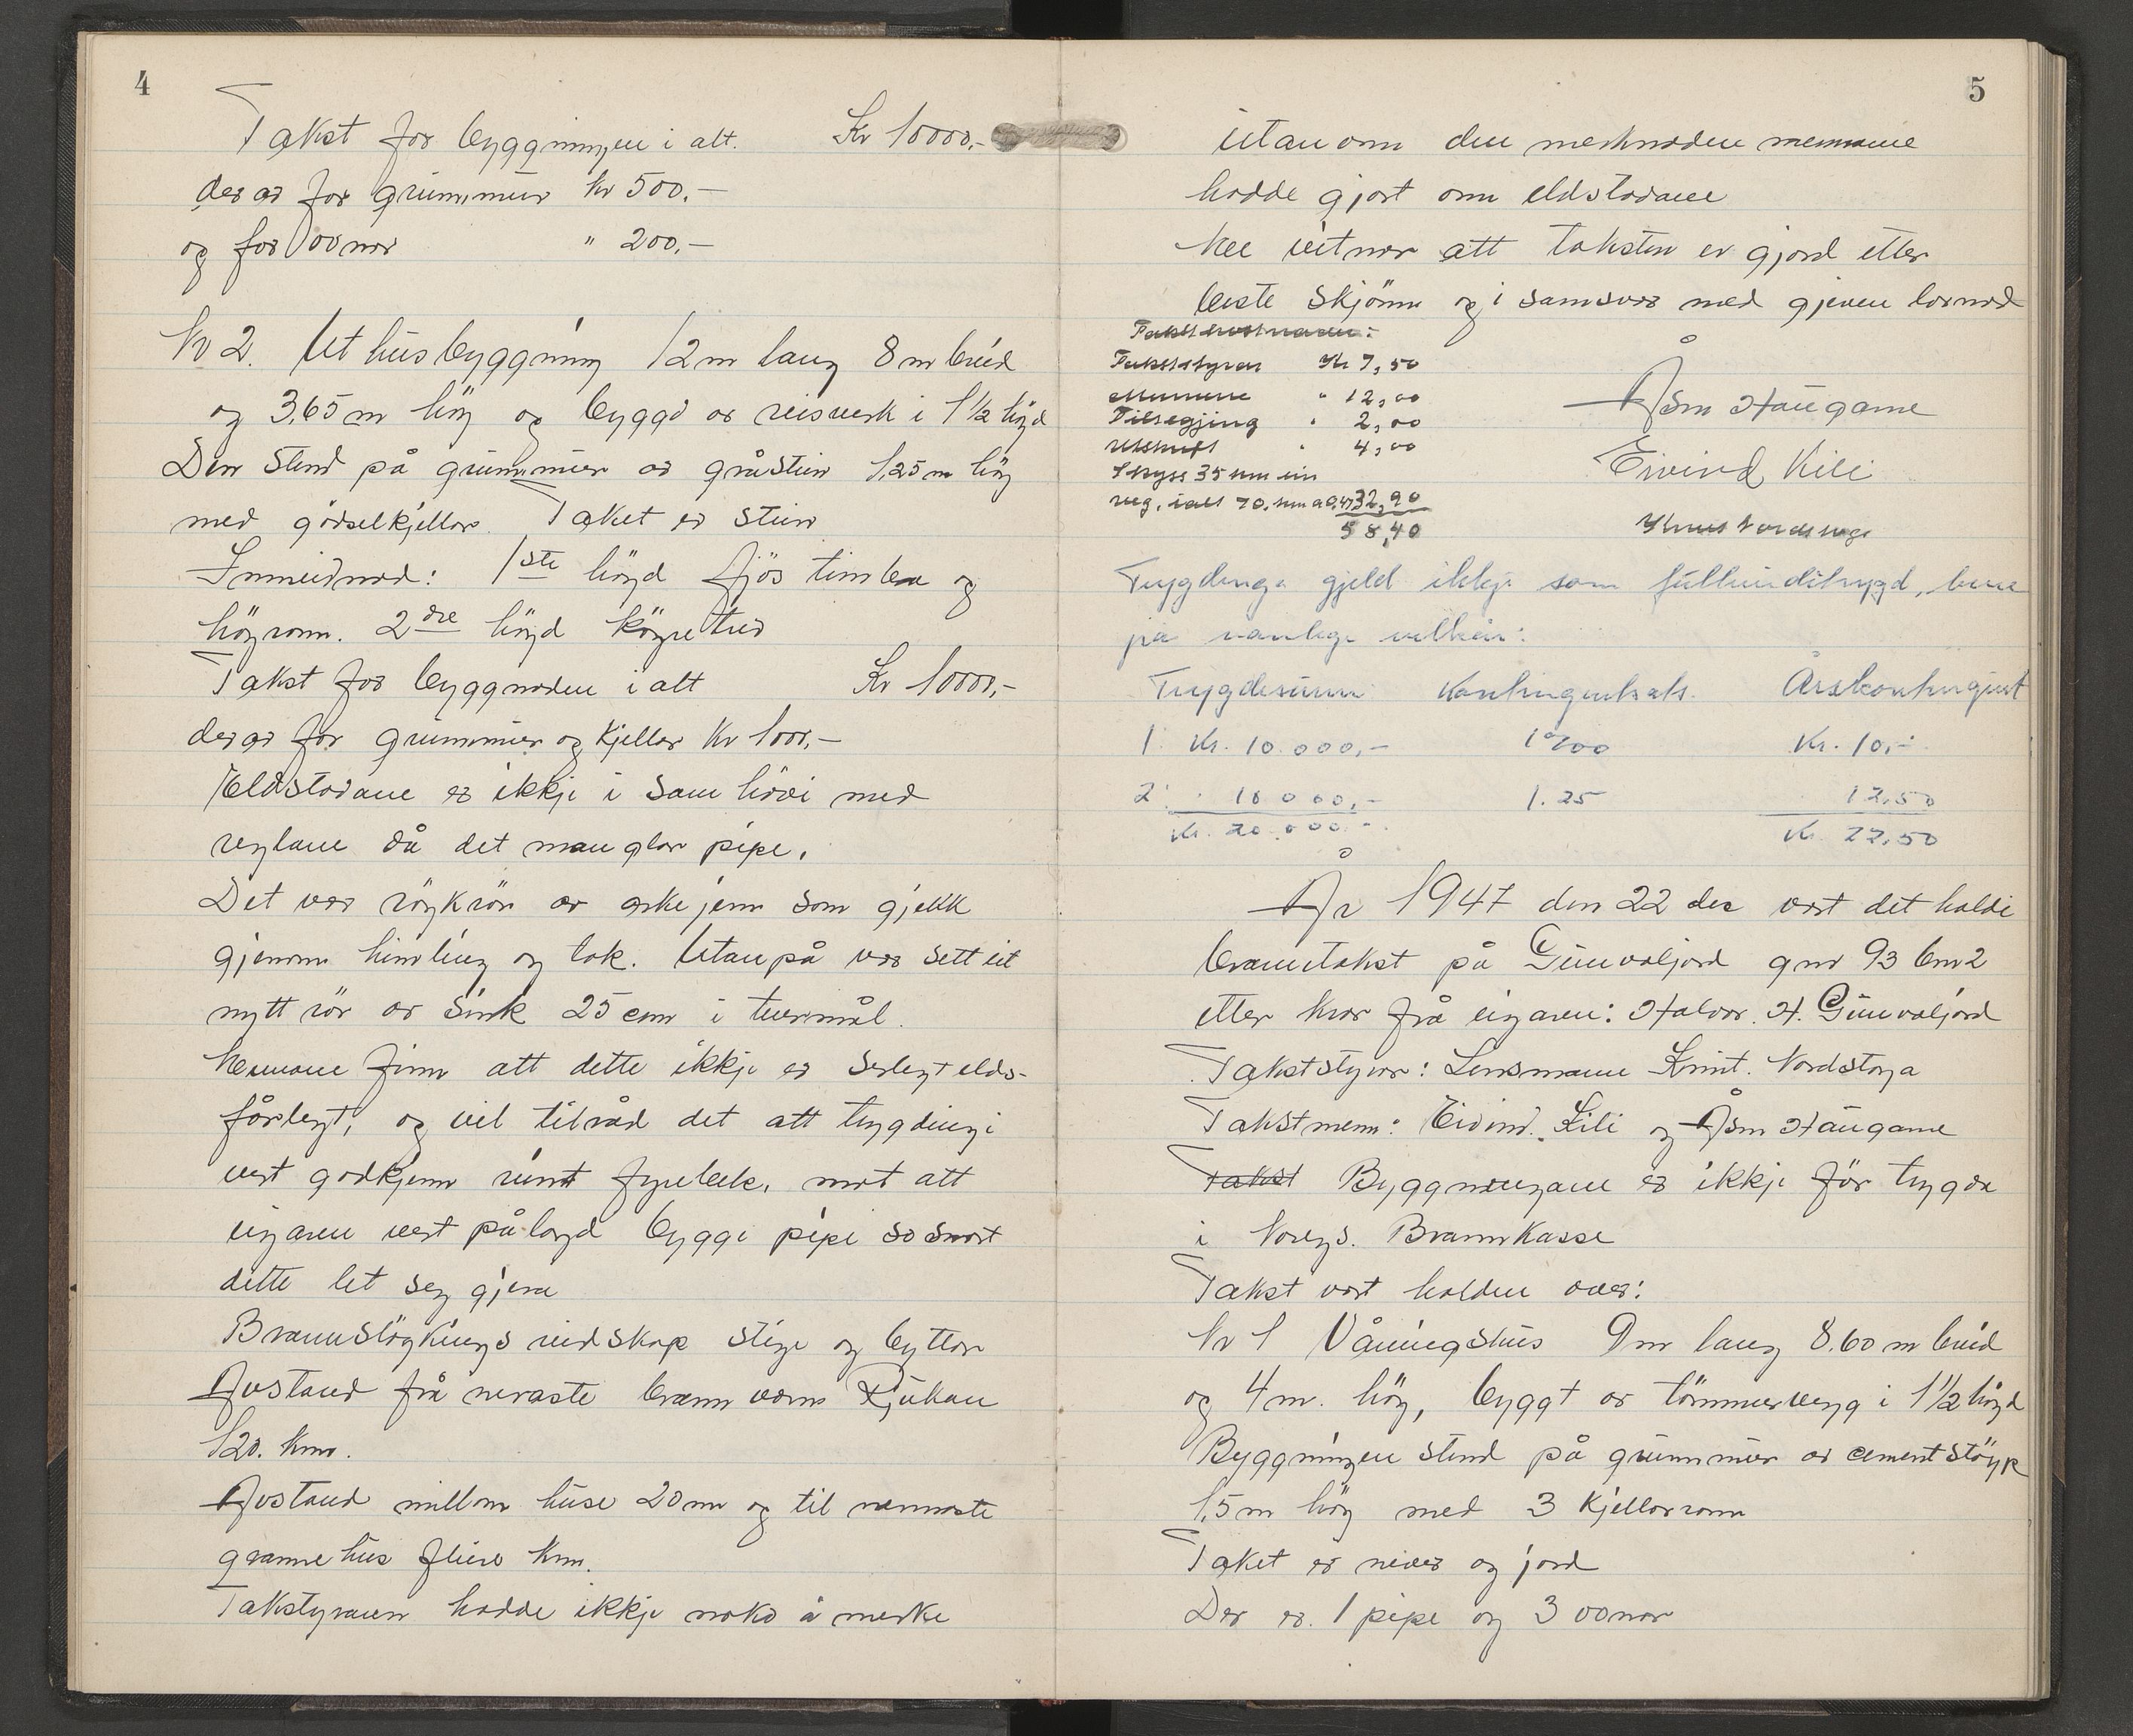 4
Takst for byggningen i alt. Kr 10000.-
derav for grunnmur kr 500.-
og for oonar " 200.-
Nr 2. Uthusbyggning 12 m lang 8 m breid
og 3,65 m høg og byggd av reisverk i 1 1/2 høgd
Den stend på grunnmur av gråstein 1,25 m høg
med gödselkjellar. Taket er stein
Innreidnad: 1ste högd fjös timbra og
höyrom. 2dre högd köyretre
Takst for byggnaden i alt Kr 10000,-
derav for grunnmur og kjellar Kr 1000,-
Eldstadane er ikkje i samhövi med
reglane då det manglar pipe.
Det var röykrör av jenn som gjekk
gjenom himling og tak. Utanpå var sett eit
nytt rör av sink 25 cm i tvermål.
Mennane finn att dette ikkje er serlegt elds-
fårlegt, og vil tilråd det att trygdingi
vert godkjenn mot att
eigaren vert pålagd byggi pipe so snart
dette let seg gjera
Brannslöykings reidskap stige og byttor
Avstand frå næraste brannvern Rjukan
120. km.
Avstand millom huse 20 m og til nærmaste
grannehus fleire km.
Takstyraren hadde ikkje noko å merke
5
utanom den merknaden mennane
hadde gjort om eldstadane
Me vitnar att taksten er gjord etter
beste skjönn og i samsvar med gjeven lovnad
Takstkostnaden:
Takststyrar Kr 7,50
Mennene " 12,00
Tilsegjing " 2,00
Utskrift " 4,00
Skyss 35 km ein
veg, ialt 70, km a 0,47 32,90
58,40
Åsm Haugane
Eivind Kili
Knut Nordstoga
Trygdinga gjeld ikkje som fullverditrygd, bere
på vanlege vilkår:
Trygdesum: Kontingentsats. Årskontingent
1. Kr. 10.000,- 1 ‰ Kr. 10,-
2. " 10 000,- 1.25 12,50
Kr. 20.000.- Kr. 22,50
År 1947 den 22 des vart det haldi
branntakst på Gunvaljord gnr 93 bnr 2
etter krav frå eigaren: Halvor. H. Gunvaljord
Takststyrar: Lensmann Knut. Nordstoga
Takstmenn: Eivind. Kili og Åsm Haugane
Takst Byggningane er ikkje för trygda
i Noregs. Brannkasse
Takst vart halden over:
Nr 1 Våningshus 9 m lang 8.60 m breid
og 4 m. höy, byggt av tömmervegg i 1 1/2 högd
Byggningen stend på grunnmur av cementstöyp
1,5 m höy med 3 kjellarrom
Taket er never og jord
Der er. 1 pipe og 3 oonar